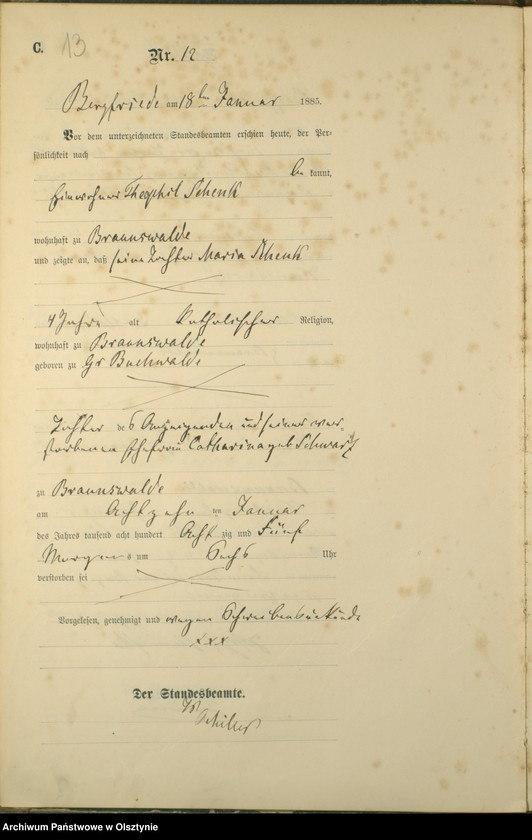 C. 13
Nr. 12
Bergfriede am 18ten Januar 1885.
Vor dem unterzeichneten Standesbeamten erschien heute, der Per-
sönlichkeit nach
be kannt,
Einwohner Theophil Schenk
wohnhaft zu Braunswalde
und zeigte an, daß seine Tochter Maria Schenk
4 Jahre alt Katholischer Religion,
wohnhaft zu Braunswalde
geboren zu Gr Buchwalde
Tochter des Anzeigenden und seiner ver-
storbenen Ehefrau Catharina geb Schwarz
zu Braunswalde
am Achtzehn ten Januar
des Jahres tausend acht hundert Acht zig und Fünf
Morgens um Sechs Uhr
verstorben sei
Vorgelesen, genehmigt und wegen Schreibensunkunde
xxx
Der Standesbeamte.
Schiller
Archiwum Państwowe w Olsztynie